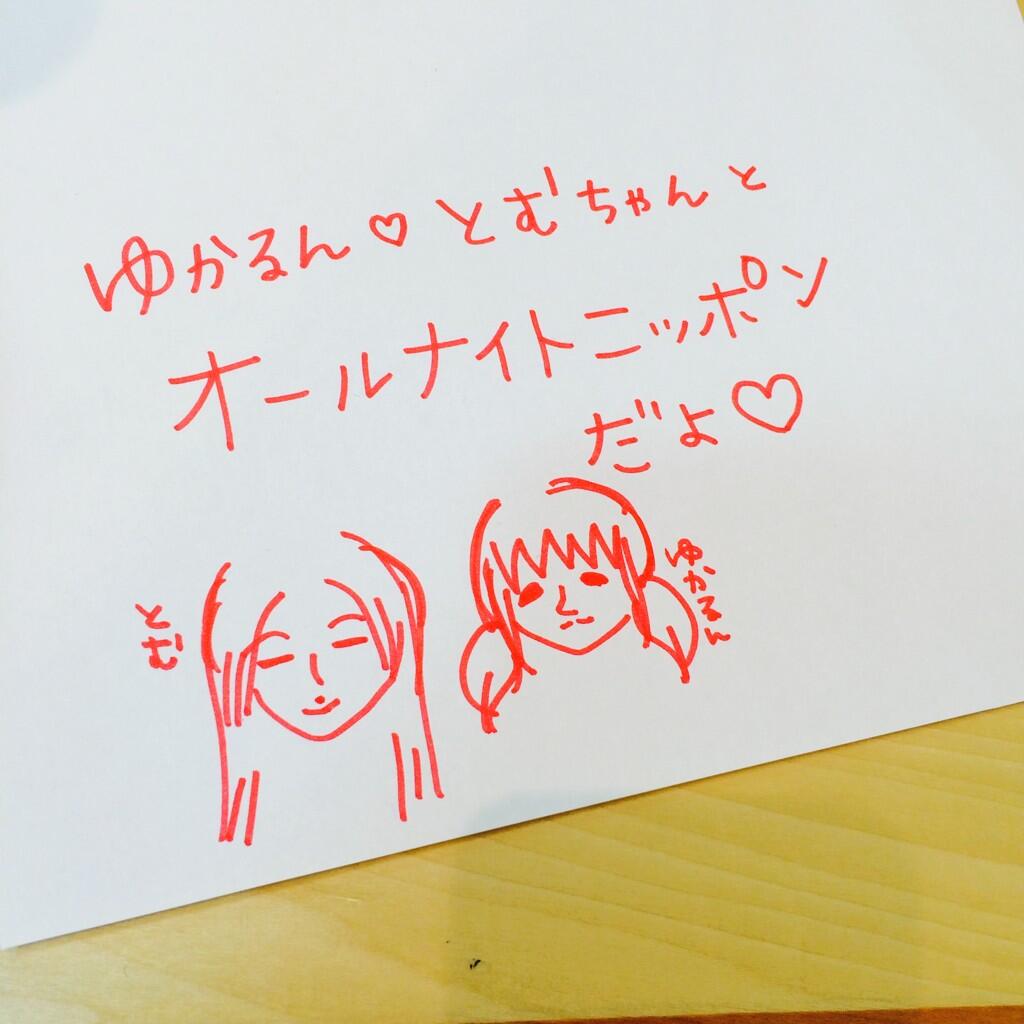 ゆかるん♡とむちゃんと
オールナイトニッポン
だよ♡
とむ
ゆかるん